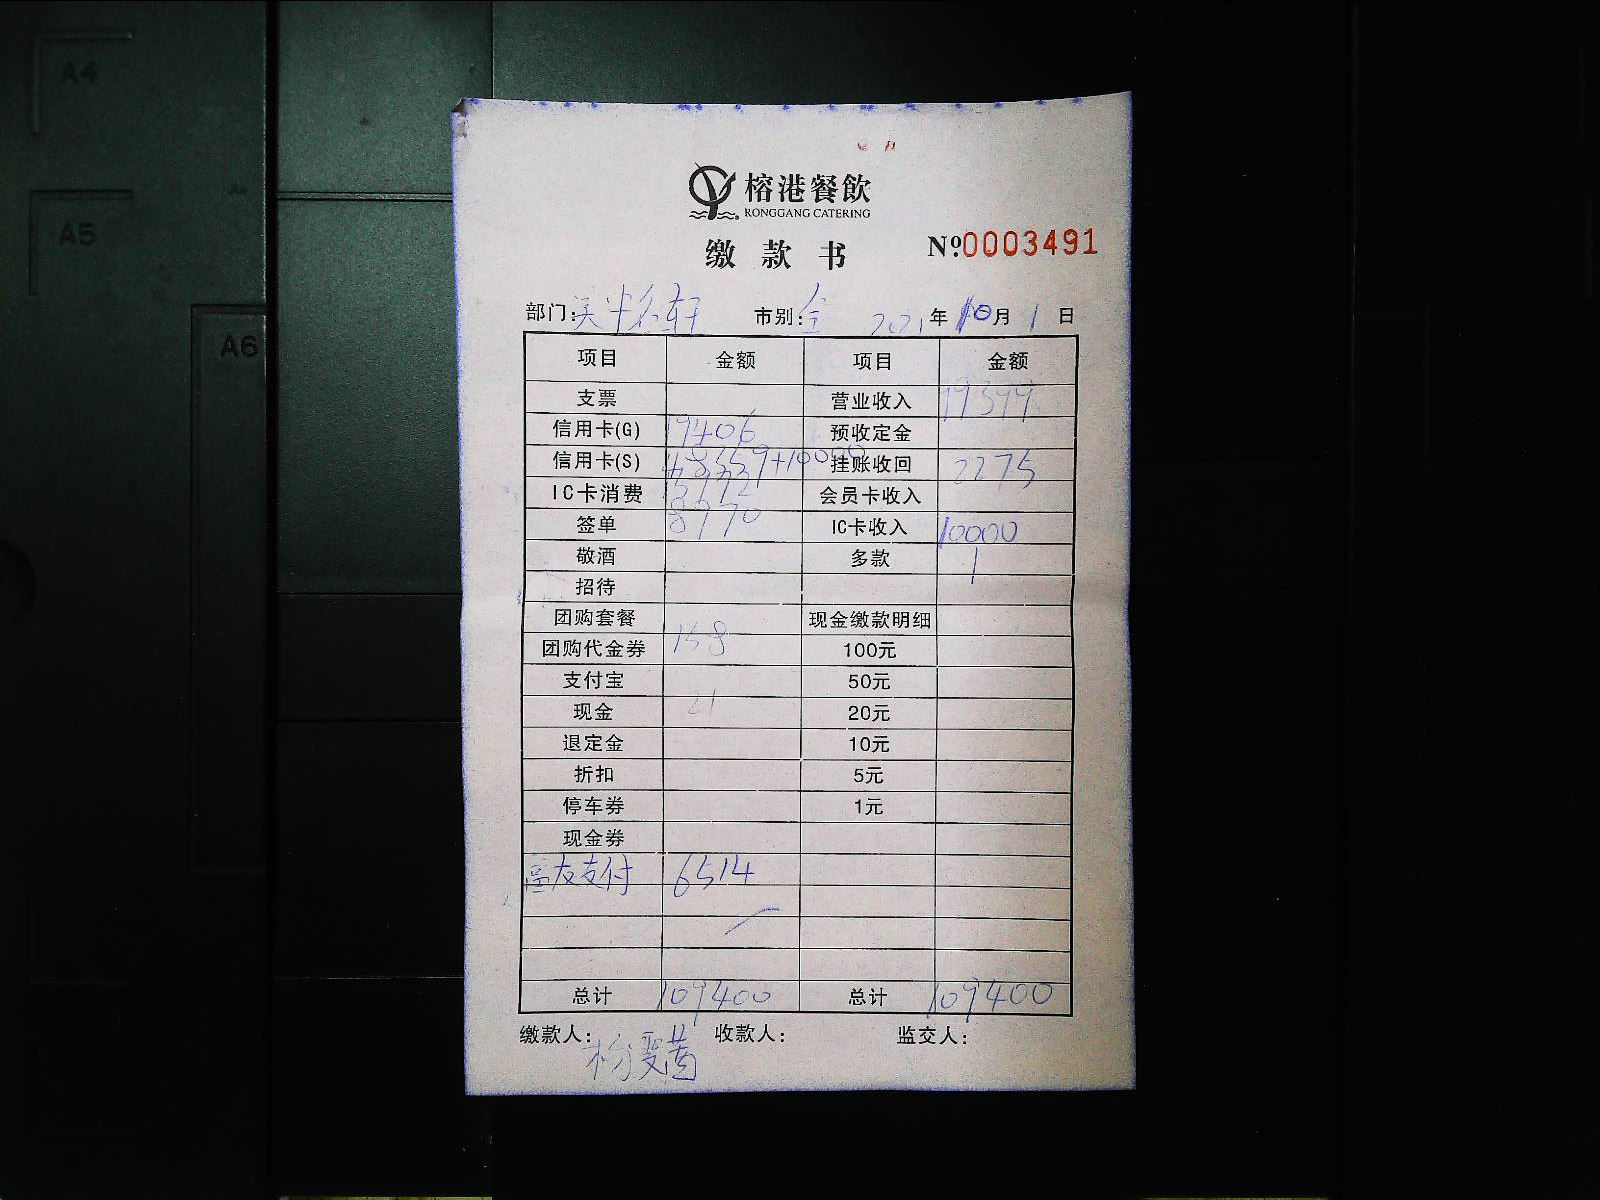 A4
A5
A6
榕港餐飲
RONGGANG CATERING
缴款书
№0003491
部门: 市别:全 2021年10月1日
项目 金额 项目 金额
支票 营业收入
信用卡(G) 19406 预收定金
信用卡(S) +10000 挂账收回 2275
IC卡消费 会员卡收入
签单 8970 IC卡收入 10000
敬酒 多款 1
招待
团购套餐 现金缴款明细
团购代金券 158 100元
支付宝 50元
现金 21 20元
退定金 10元
折扣 5元
停车券 1元
现金券
友支付 6514
总计 109400 总计 109400
缴款人: 收款人: 监交人: